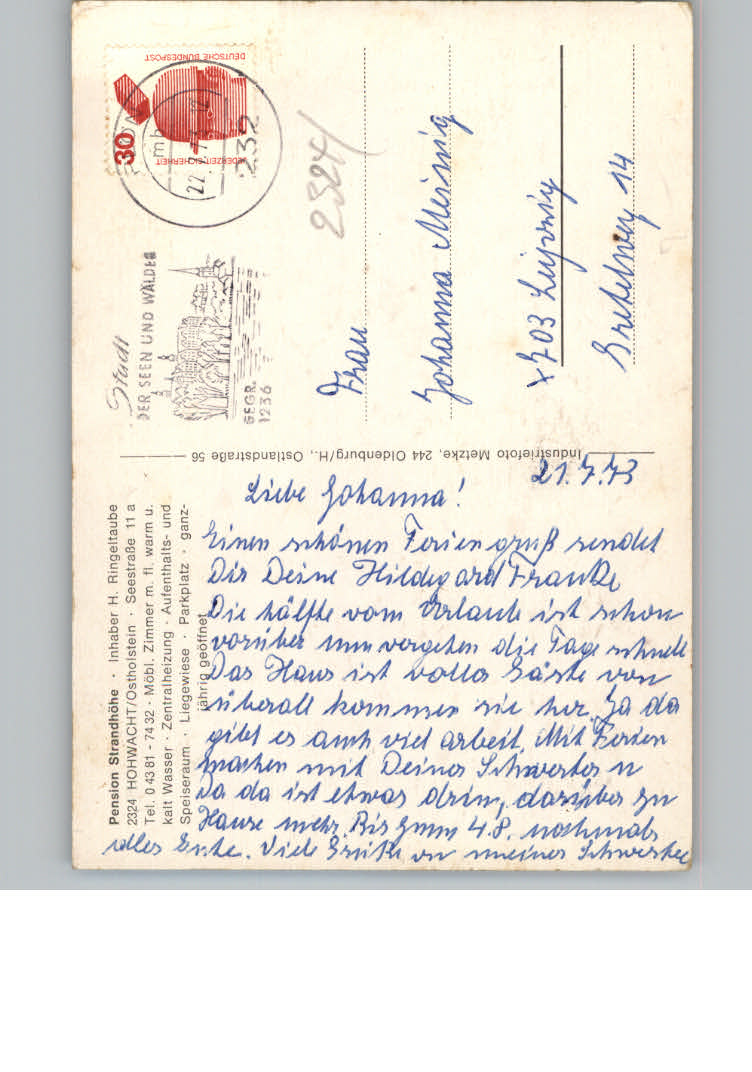 Pension Strandhöhe · Inhaber H. Ringeltaube
2324 HOHWACHT/Ostholstein · Seestraße 11 a
Tel. 0 43 81 - 74 32 · Möbl. Zimmer m. fl. warm u.
kalt Wasser · Zentralheizung · Aufenthalts- und
Speiseraum · Liegewiese · Parkplatz · ganz-
jährig geöffnet
21.7.73
Liebe Johanna!
Einen schönen Feriengruß sendet
Dir Deine Hildegard Franke
Die hälfte vom Urlaub ist schon
vorüber nun vergehen die Tage schnell
Das Haus ist voller Gäste von
überall kommen sie her. Ja da
gibt es auch viel arbeit. Mit Ferien
machen mit Deiner Schwester u
Ja da ist etwas drin, darüber zu
Hause mehr. Bis zum 4.8. nochmals
alles Gute. Viele Grüße von meiner Schwester
Industriefoto Metzke, 244 Oldenburg/H., Ostlandstraße 56
Stadt
DER SEEN UND WÄLDER
GEGR.
1236
PLÖN
mb
22.7.73
232
DEUTSCHE BUNDESPOST
JEDERZEIT SICHERHEIT
30
2324
Frau
Johanna Meisnig
X 703 Leipzig
Gretelweg 14